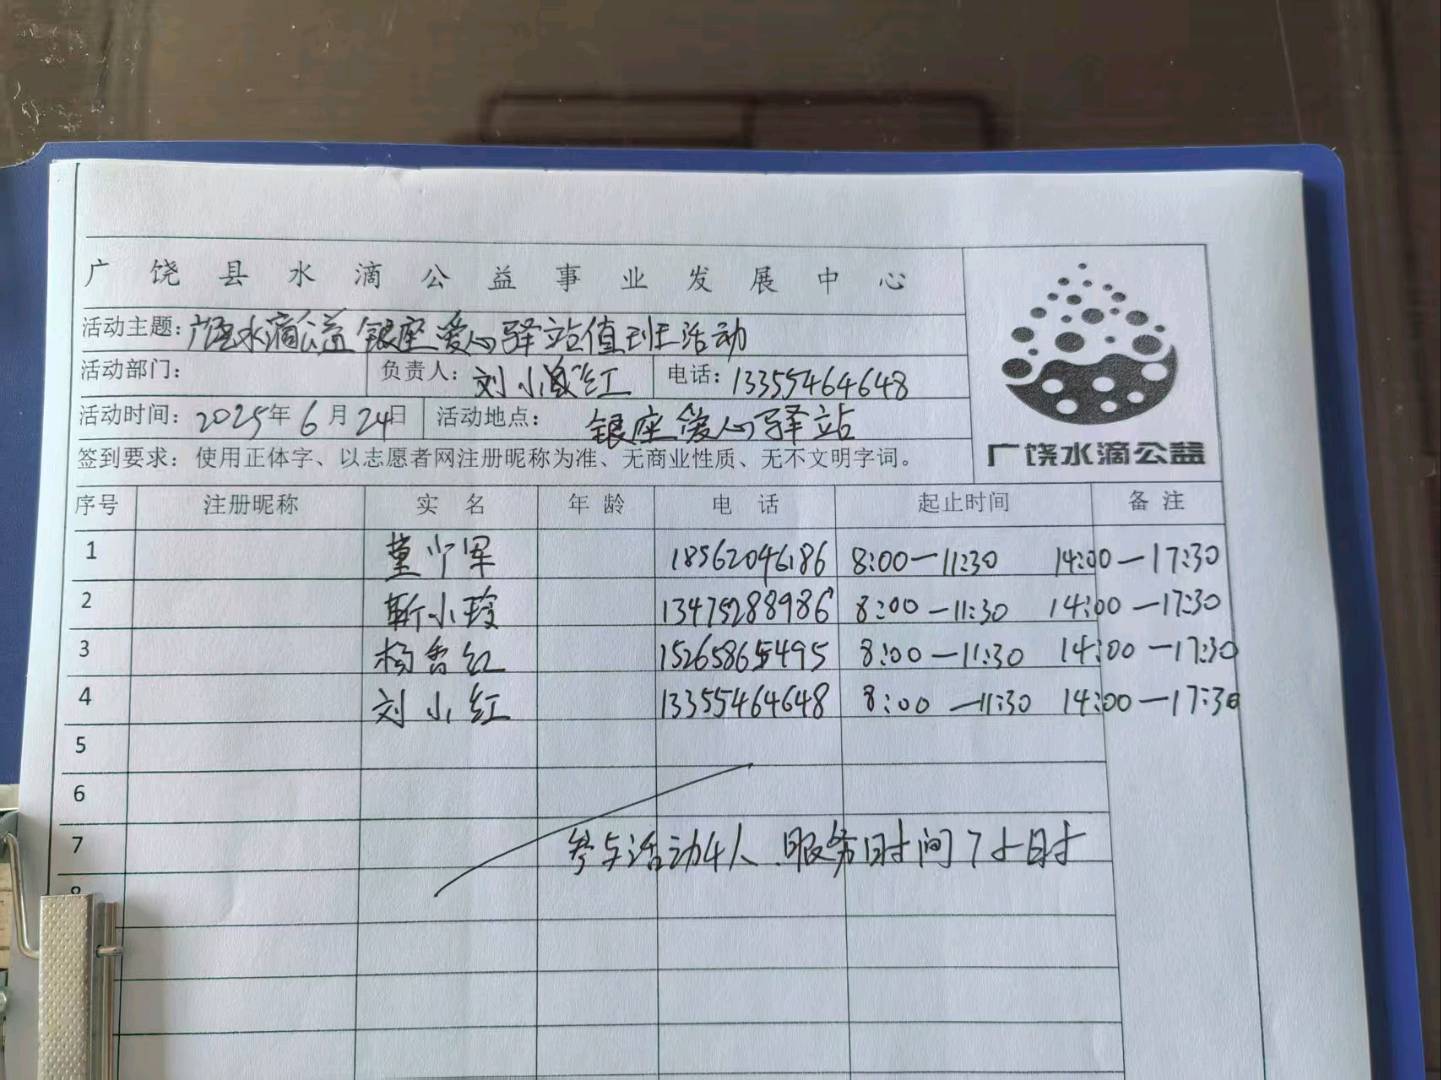 广饶县水滴公益事业发展中心
活动主题：广饶水滴公益银座爱心驿站值班活动
活动部门： 负责人：刘小红 电话：13355464648
活动时间：2025年6月24日 活动地点：银座爱心驿站
签到要求：使用正体字、以志愿者网注册昵称为准、无商业性质、无不文明字词。
广饶水滴公益
序号 注册昵称 实名 年龄 电话 起止时间 备注
1 董少军 18562046186 8:00—11:30 14:00—17:30
2 靳小玲 13475288986 8:00—11:30 14:00—17:30
3 杨香红 15265865495 8:00—11:30 14:00—17:30
4 刘小红 13355464648 8:00—11:30 14:00—17:30
5
6
7 参与活动4人.服务时间7小时
8